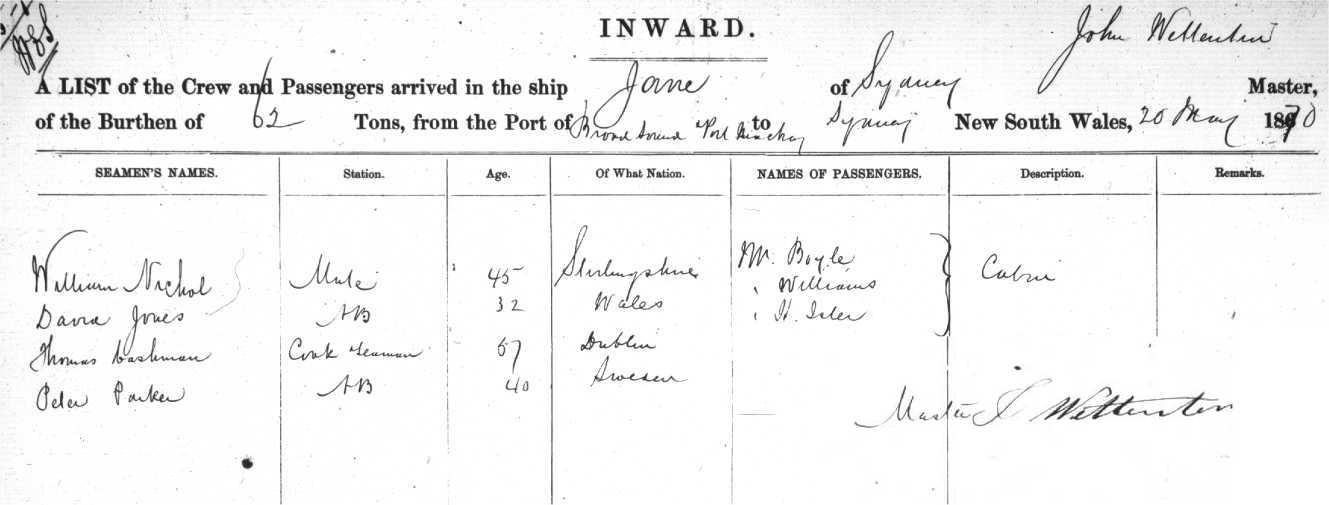 INWARD.
John Wettenten
A LIST of the Crew and Passengers arrived in the ship Jane of Sydney Master,
of the Burthen of 62 Tons, from the Port of Broad Sound & Port Mackay to Sydney New South Wales, 20 May 1870
SEAMEN'S NAMES. Station. Age. Of What Nation. NAMES OF PASSENGERS. Description. Remarks.
William Nichol Mate 45 Stirlingshire Mr. Boyle Cabin
David Jones AB 32 Wales " Williams
Thomas Cashman Cook & Seaman 57 Dublin " H.
Peter Parker AB 40 Sweden
Master J Wettenten